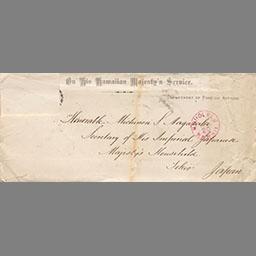 On His Hawaiian Majesty's Service.
Department of Foreign Affairs
Honorable
Secretary of His Imperial Japanese
Majesty's Household
Tokio
Japan